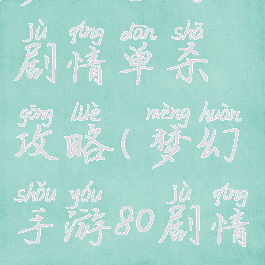 jù qíng dān shā
剧情单杀
gōng lüè mèng huàn
攻略(梦幻
shǒu yóu jù qíng
手游80剧情